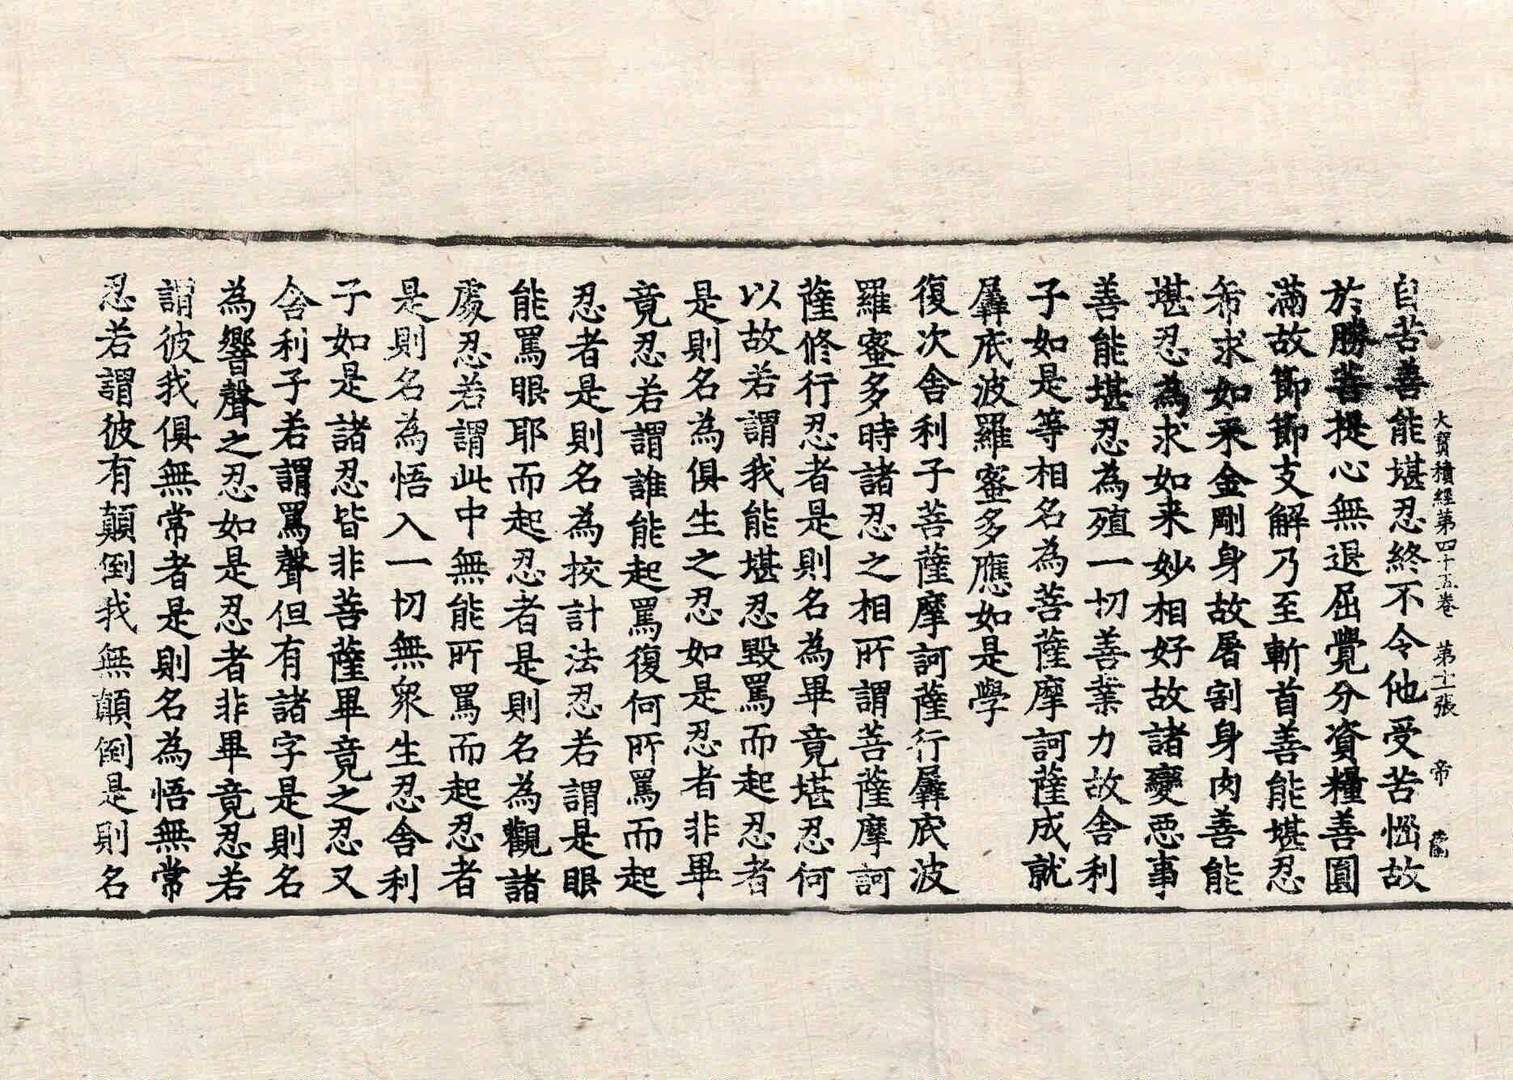 大寶積經第四十五卷 第十一張 帝
自苦善能堪忍終不令他受苦惱故
於勝菩提心無退屈覺分資糧善圓
滿故節節支解乃至斬首善能堪忍
希求如來金剛身故屠割身肉善能
堪忍為求如来妙相好故諸變惡事
善能堪忍為殖一切善業力故舍利
子如是等相名為菩薩摩訶薩成就
羼底波羅蜜多應如是學
復次舍利子菩薩摩訶薩行羼底波
羅蜜多時諸忍之相所謂菩薩摩訶
薩修行忍者是則名為畢竟堪忍何
以故若謂我能堪忍毀罵而起忍者
是則名為俱生之忍如是忍者非畢
竟忍若謂誰能起罵復何所罵而起
忍者是則名為挍計法忍若謂是眼
能罵眼耶而起忍者是則名為觀諸
處忍若謂此中無能所罵而起忍者
是則名為悟入一切無衆生忍舍利
子如是諸忍皆非菩薩畢竟之忍又
舍利子若謂罵聲但有諸字是則名
為響聲之忍如是忍者非畢竟忍若
謂彼我俱無常者是則名為悟無常
忍若謂彼有顛倒我無顛倒是則名